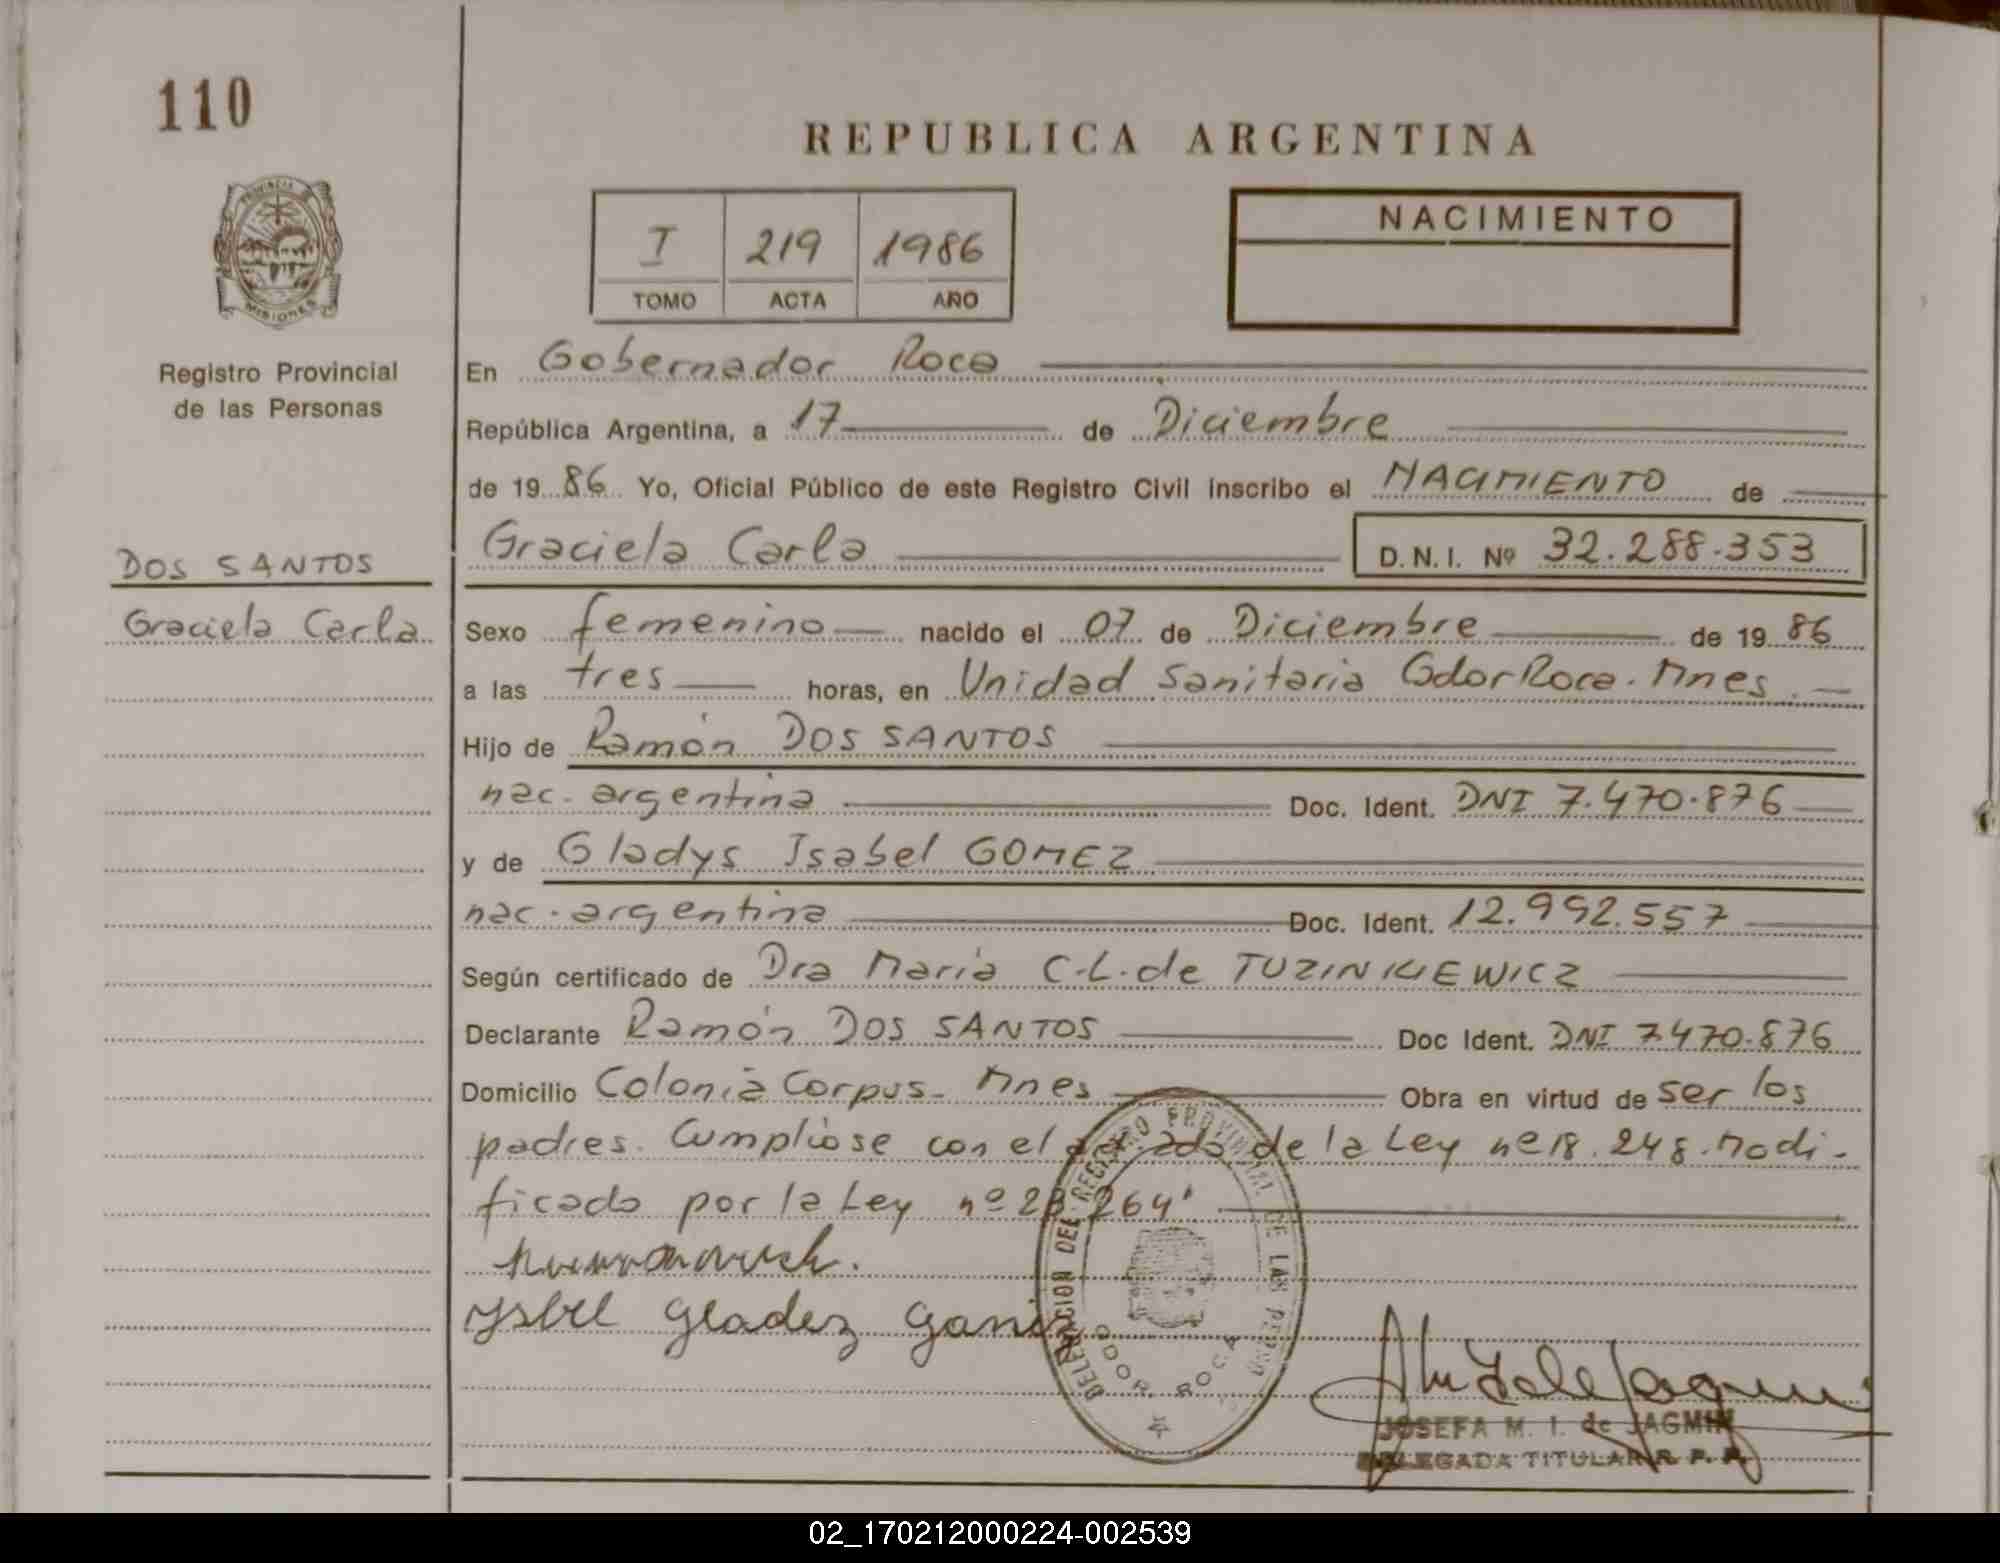 110
REPUBLICA ARGENTINA
PROVINCIA DE
MISIONES
I 219 1986
TOMO ACTA AÑO
NACIMIENTO
Registro Provincial
de las Personas
En Gobernador Roca
República Argentina, a 17 de Diciembre
de 1986 Yo, Oficial Público de este Registro Civil inscribo el NACIMIENTO de
Graciela Carla D.N.I. Nº 32.288.353
DOS SANTOS
Graciela Carla
Sexo femenino nacido el 07 de Diciembre de 1986
a las tres horas, en Unidad Sanitaria Gdor Roca. Mnes.
Hijo de Ramón DOS SANTOS
nac. argentina Doc. Ident. DNI 7.470.876
y de Gladys Isabel GOMEZ
nac. argentina Doc. Ident. 12.992.557
Según certificado de Dra María C.L. de TUZINKIEWICZ
Declarante Ramón DOS SANTOS Doc Ident. DNI 7.470.876
Domicilio Colonia Corpus. Mnes Obra en virtud de ser los
padres. Cumpliose con el de la Ley nº 18.248. Modi-
ficado por la Ley nº 23.264
Ysbel Gladez
DELEGACION DEL REGISTRO PROVINCIAL DE LAS PERSONAS
GDOR. ROCA
JOSEFA M. I. de JAGMIN
DELEGADA TITULAR R. P. P.
02_170212000224-002539